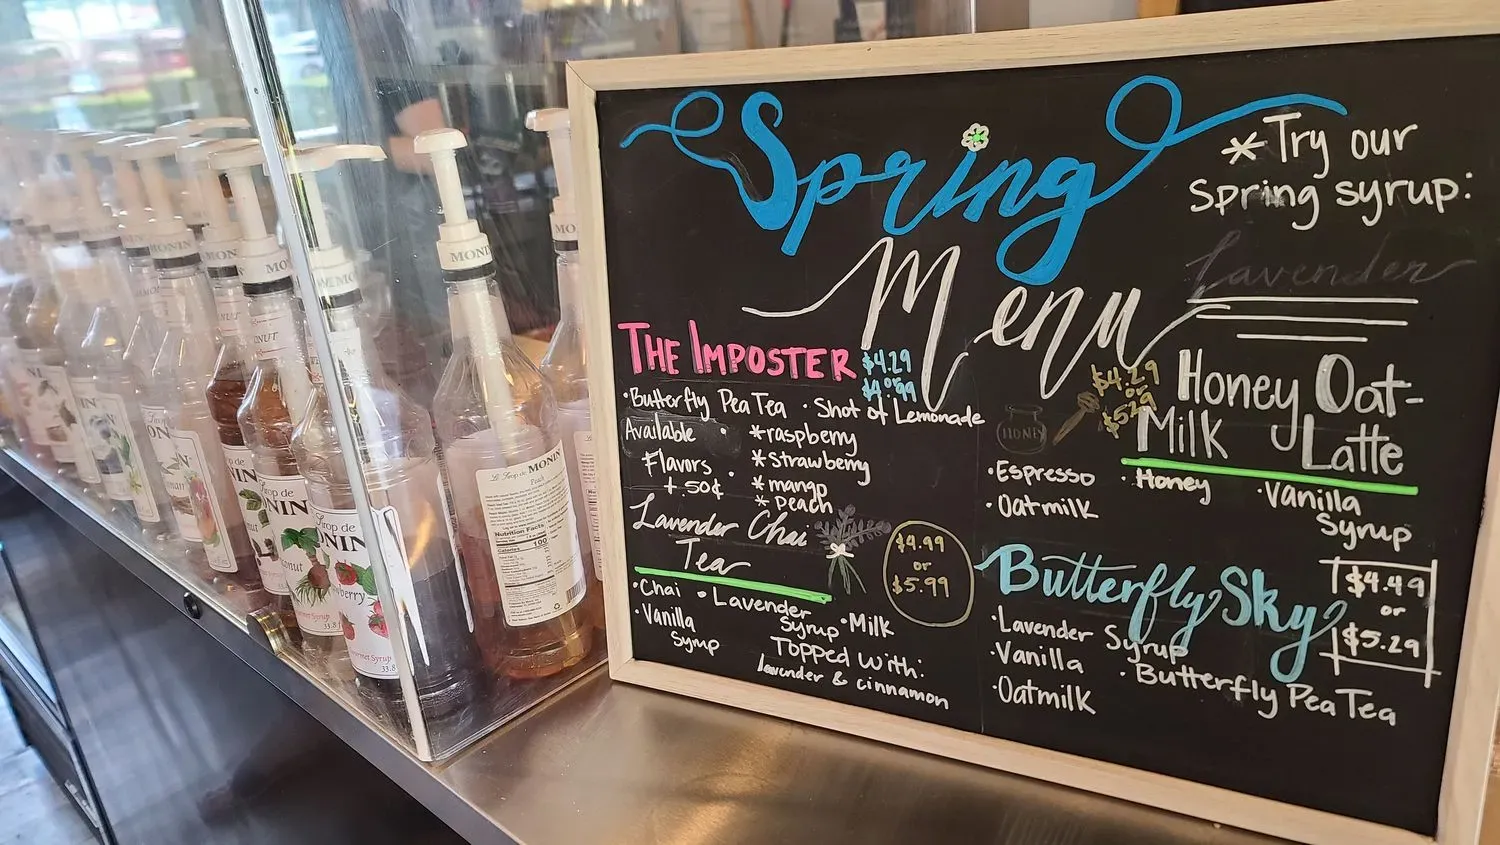 Spring
Menu
*Try our
spring syrup:
Lavender
THE IMPOSTER
$4.29
or
$4.99
·Butterfly Pea Tea · Shot of Lemonade
Available
Flavors
+.50¢
*raspberry
*strawberry
*mango
*peach
Lavender Chai
Tea
$4.99
or
$5.99
·Chai ·Lavender
Syrup ·Milk
·Vanilla
Syrup
Topped with:
lavender & cinnamon
$4.29
or
$5.29
Honey Oat-
Milk Latte
HONEY
·Espresso ·Honey ·Vanilla
Syrup
·Oatmilk
Butterfly Sky
$4.49
or
$5.29
·Lavender Syrup
·Vanilla ·Butterfly Pea Tea
·Oatmilk
MONIN
MONIN
Le Sirop de MONIN
Peach
Nutrition Facts
Calories 100
Sirop de
MONIN